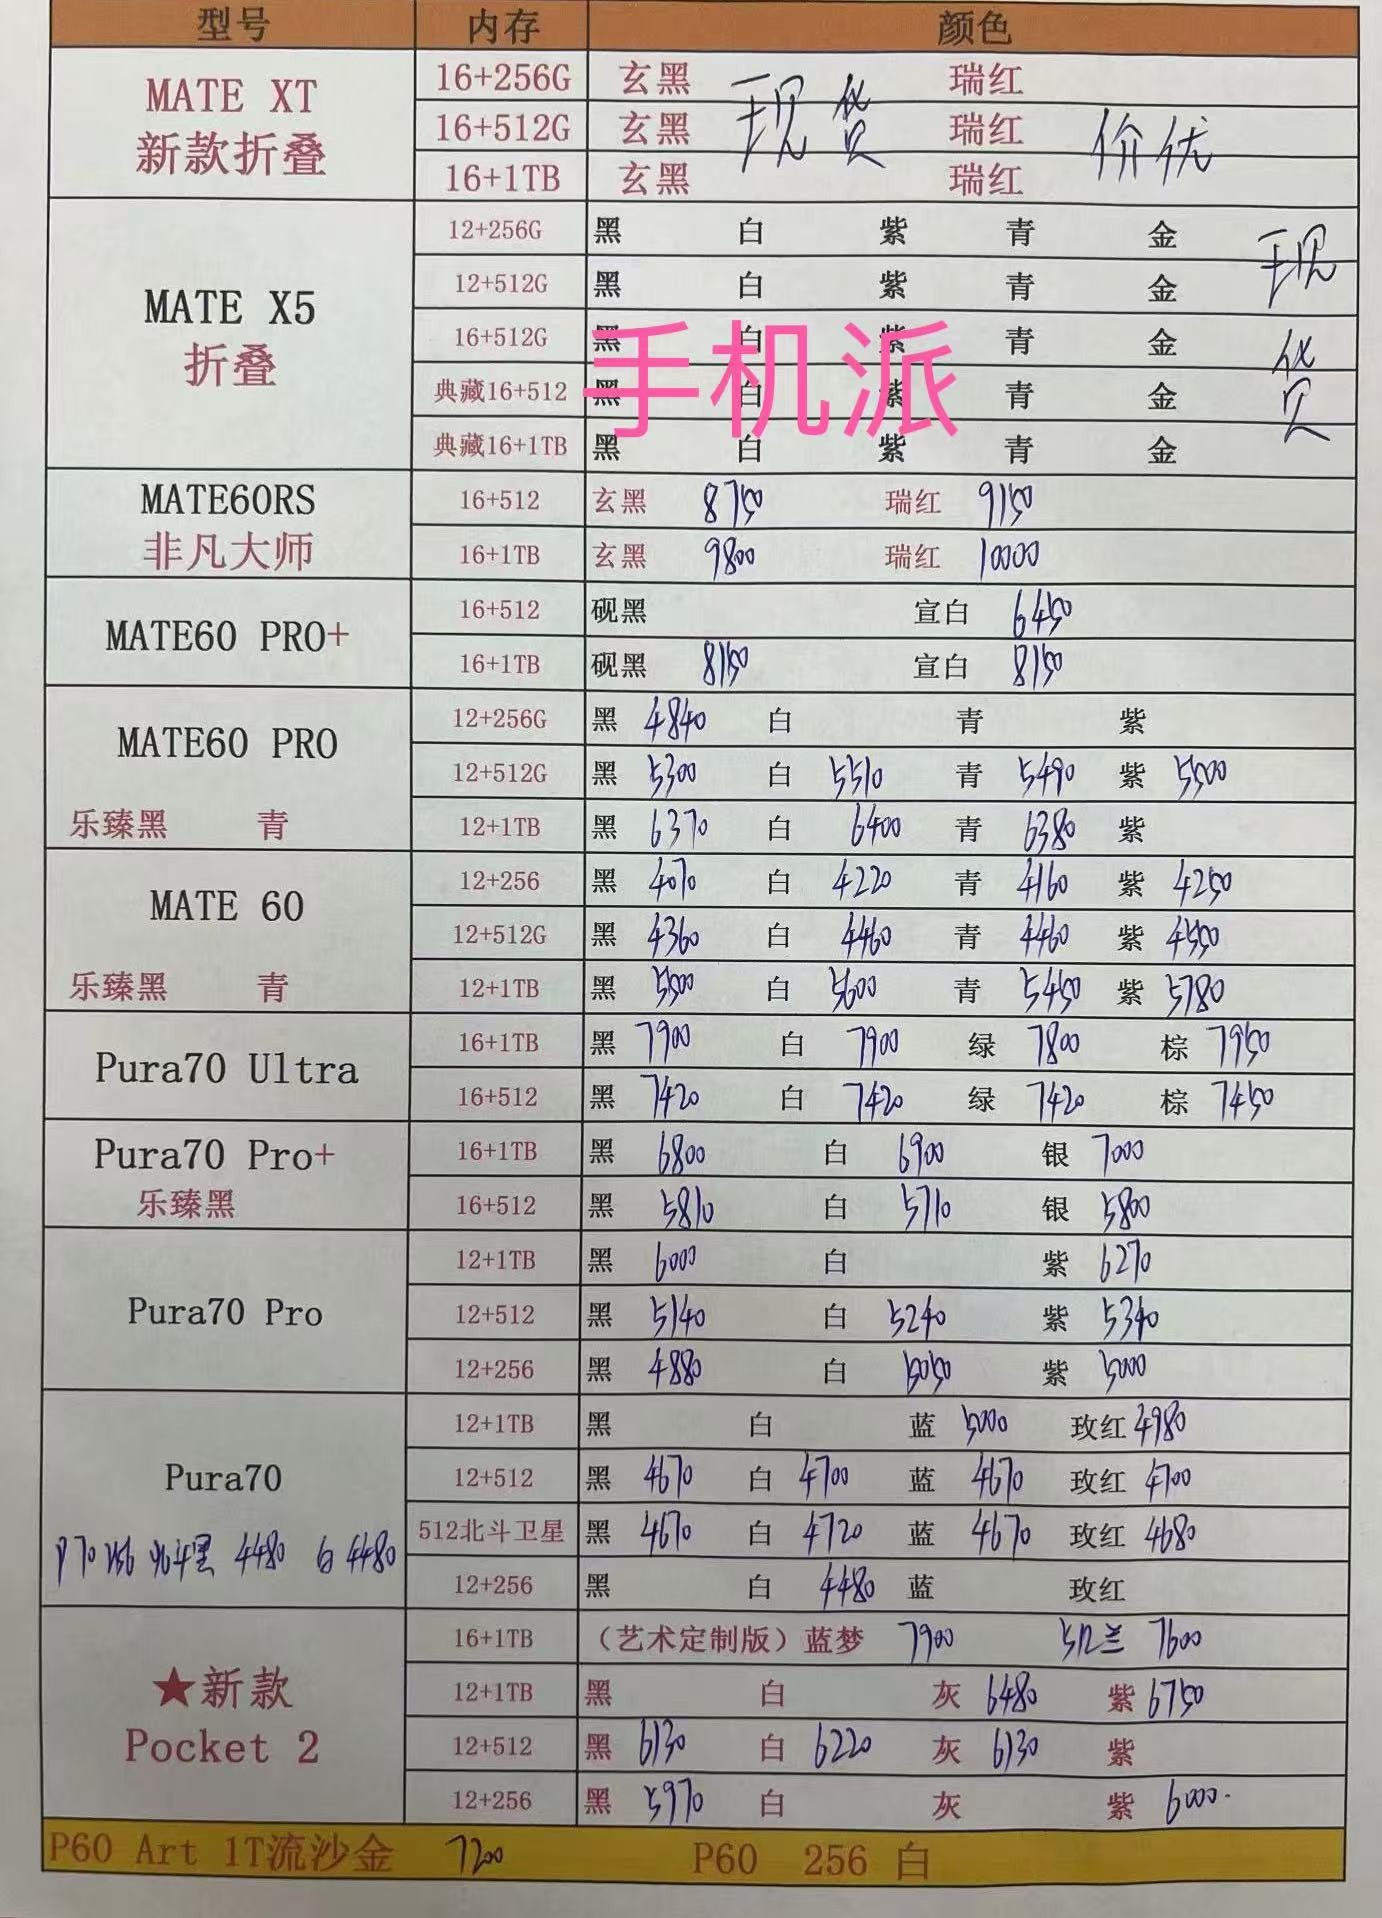 型号 内存 颜色
MATE XT 新款折叠
16+256G 玄黑 瑞红
16+512G 玄黑 现货 瑞红 价优
16+1TB 玄黑 瑞红
MATE X5 折叠 现货
12+256G 黑 白 紫 青 金
12+512G 黑 白 紫 青 金
16+512G 黑 白 紫 青 金
手机派
典藏16+512 黑 白 紫 青 金
典藏16+1TB 黑 白 紫 青 金
MATE60RS 非凡大师
16+512 玄黑 8750 瑞红 9150
16+1TB 玄黑 9800 瑞红 10000
MATE60 PRO+
16+512 砚黑 宣白 6450
16+1TB 砚黑 8150 宣白 8150
MATE60 PRO
12+256G 黑 4840 白 青 紫
12+512G 黑 5300 白 5510 青 5490 紫 5500
乐臻黑 青
12+1TB 黑 6370 白 6400 青 6380 紫
MATE 60
12+256 黑 4070 白 4220 青 4160 紫 4250
12+512G 黑 4360 白 4460 青 4460 紫 4550
乐臻黑 青
12+1TB 黑 5500 白 5600 青 5450 紫 5780
Pura70 Ultra
16+1TB 黑 7900 白 7900 绿 7800 棕 7950
16+512 黑 7420 白 7420 绿 7420 棕 7450
Pura70 Pro+
乐臻黑
16+1TB 黑 6800 白 6900 银 7000
16+512 黑 5810 白 5710 银 5800
Pura70 Pro
12+1TB 黑 6000 白 紫 6270
12+512 黑 5140 白 5240 紫 5340
12+256 黑 4880 白 5050 紫 5000
Pura70
12+1TB 黑 白 蓝 5000 玫红 4980
12+512 黑 4670 白 4700 蓝 4670 玫红 4700
512北斗卫星 黑 4670 白 4720 蓝 4670 玫红 4680
P70 256 北斗黑 4480 白 4480
12+256 黑 白 4480 蓝 玫红
★新款
Pocket 2
16+1TB (艺术定制版)蓝梦 7900 512兰 7600
12+1TB 黑 白 灰 6480 紫 6750
12+512 黑 6130 白 6220 灰 6130 紫
12+256 黑 5970 白 灰 紫 6000.
P60 Art 1T流沙金 7200 P60 256 白